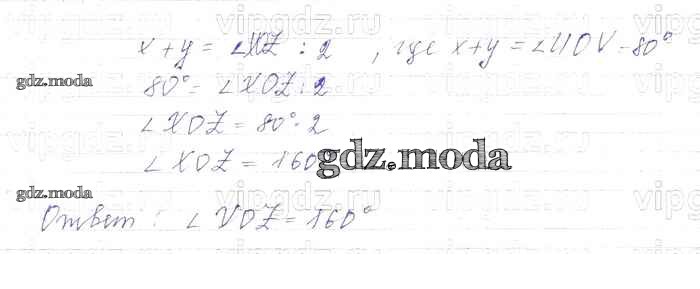 vipgdz.ru vipgdz.ru vipgdz.ru
x + y = ∠XOZ : 2 , где x+y = ∠UOV = 80°
gdz.moda
80° = ∠XOZ : 2
∠XOZ = 80° · 2
∠XOZ = 160
gdz.moda
gdz.moda
Ответ: ∠XOZ = 160°